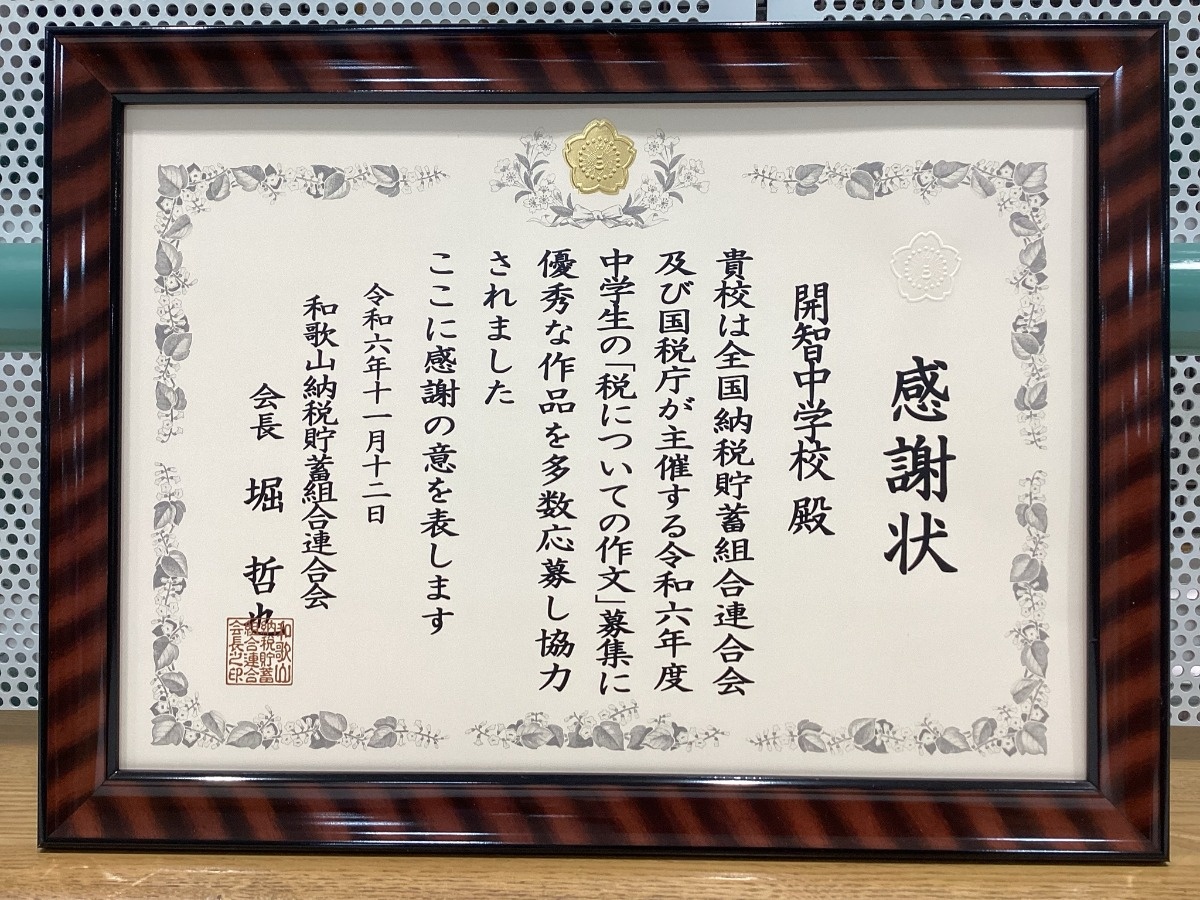 感謝状
開智中学校 殿
貴校は全国納税貯蓄組合連合会
及び国税庁が主催する令和六年度
中学生の「税についての作文」募集に
優秀な作品を多数応募し協力
されました
ここに感謝の意を表します
令和六年十一月十二日
和歌山納税貯蓄組合連合会
会長 堀 哲也
和歌山
納税貯蓄
組合連合
会長之印